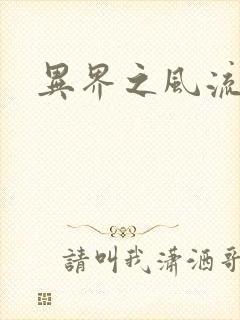 異界之風流
請叫我瀟洒哥